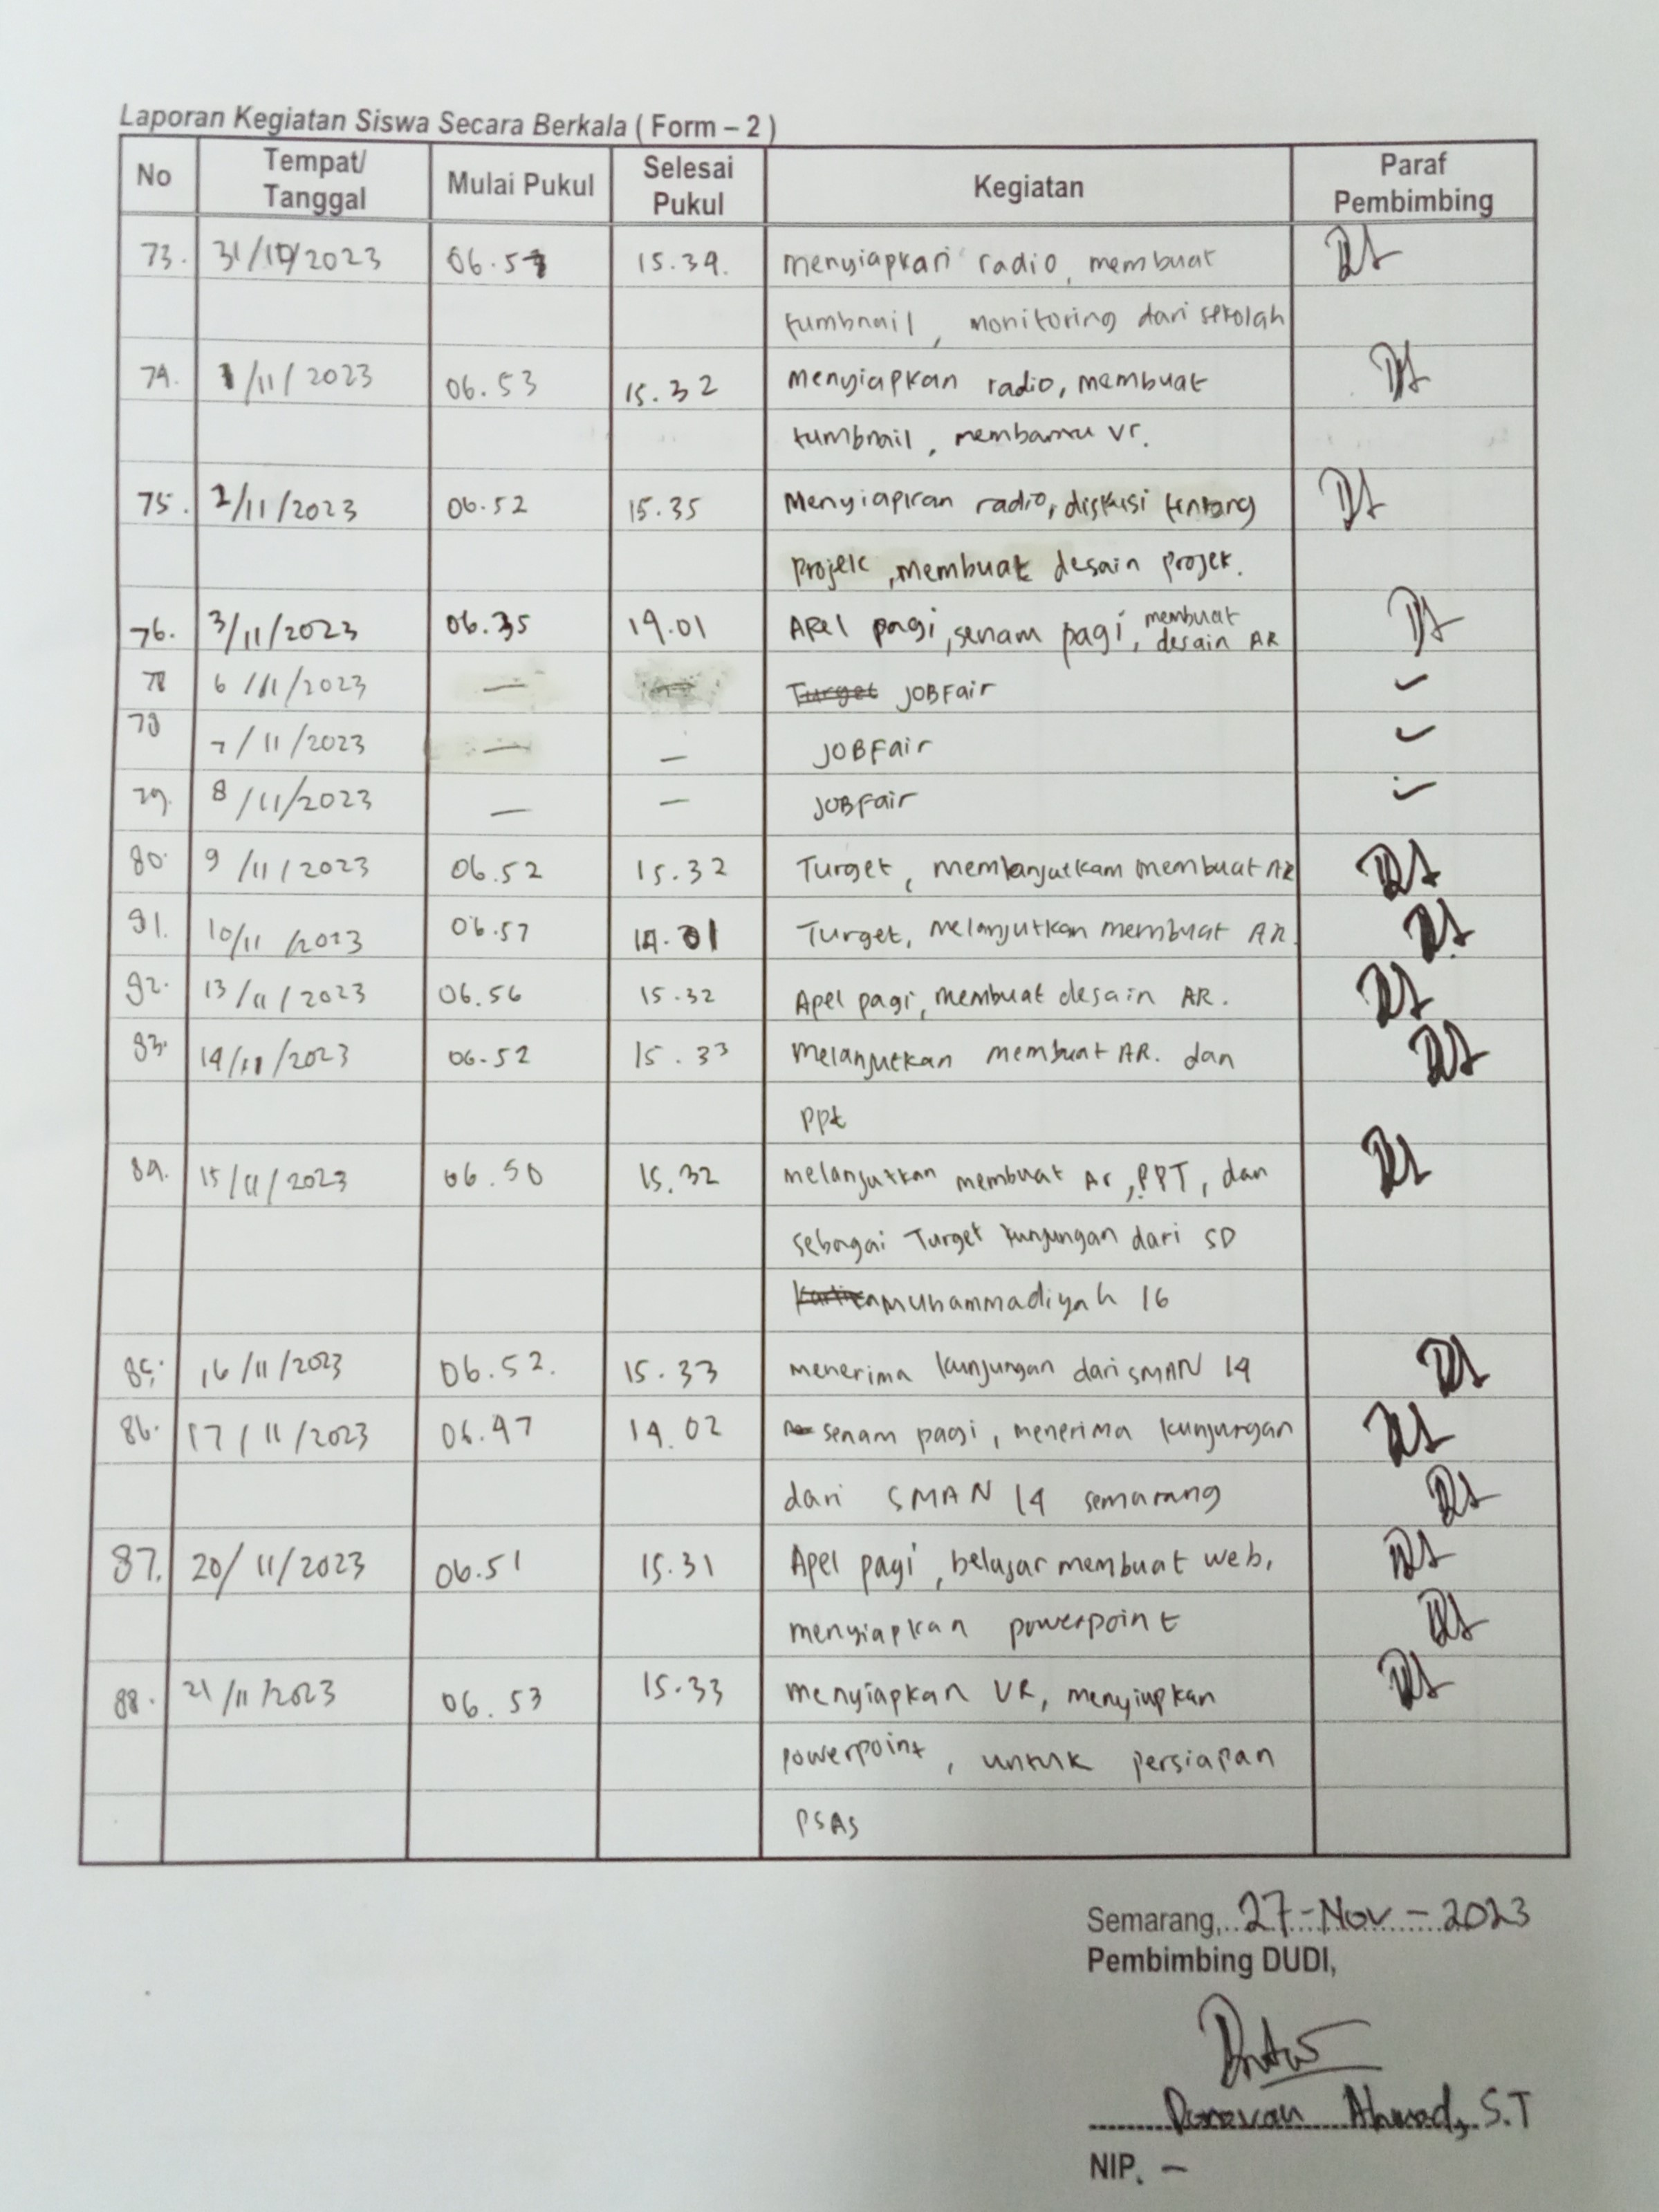 Laporan Kegiatan Siswa Secara Berkala ( Form – 2 )
No Tempat/ Tanggal Mulai Pukul Selesai Pukul Kegiatan Paraf Pembimbing
73. 31/10/2023 06.57 15.34. menyiapkan radio, membuat
tumbnail, monitoring dari sekolah
74. 1/11/2023 06.53 15.32 menyiapkan radio, membuat
tumbnail, membantu Vr.
75. 2/11/2023 06.52 15.35 Menyiapkan radio, diskusi tentang
projek, membuat desain projek.
76. 3/11/2023 06.35 14.01 Apel pagi, senam pagi, membuat desain AR
6/11/2023 — — JOBFair
7/11/2023 — — JOBFair
79. 8/11/2023 — — JOBFair
80. 9/11/2023 06.52 15.32 Turget, memlanjutkam membuat AR
81. 10/11/2023 06.57 14.01 Turget, melanjutkan membuat AR.
82. 13/11/2023 06.56 15.32 Apel pagi, membuat desain AR.
83. 14/11/2023 06.52 15.33 melanjutkan membuat AR. dan
ppt
84. 15/11/2023 06.50 15.32 melanjutkan membuat Ar, PPT, dan
sebagai Turget kunjungan dari SD
muhammadiyah 16
85. 16/11/2023 06.52. 15.33 menerima kunjungan dari SMAN 14
86. 17/11/2023 06.47 14.02 senam pagi, menerima kunjungan
dari SMAN 14 semarang
87. 20/11/2023 06.51 15.31 Apel pagi, belajar membuat web,
menyiapkan powerpoint
88. 21/11/2023 06.53 15.33 menyiapkan VR, menyiapkan
powerpoint, untuk persiapan
PSAS
Semarang, 27-Nov-2023
Pembimbing DUDI,
Donovan Ahmad, S.T
NIP. –